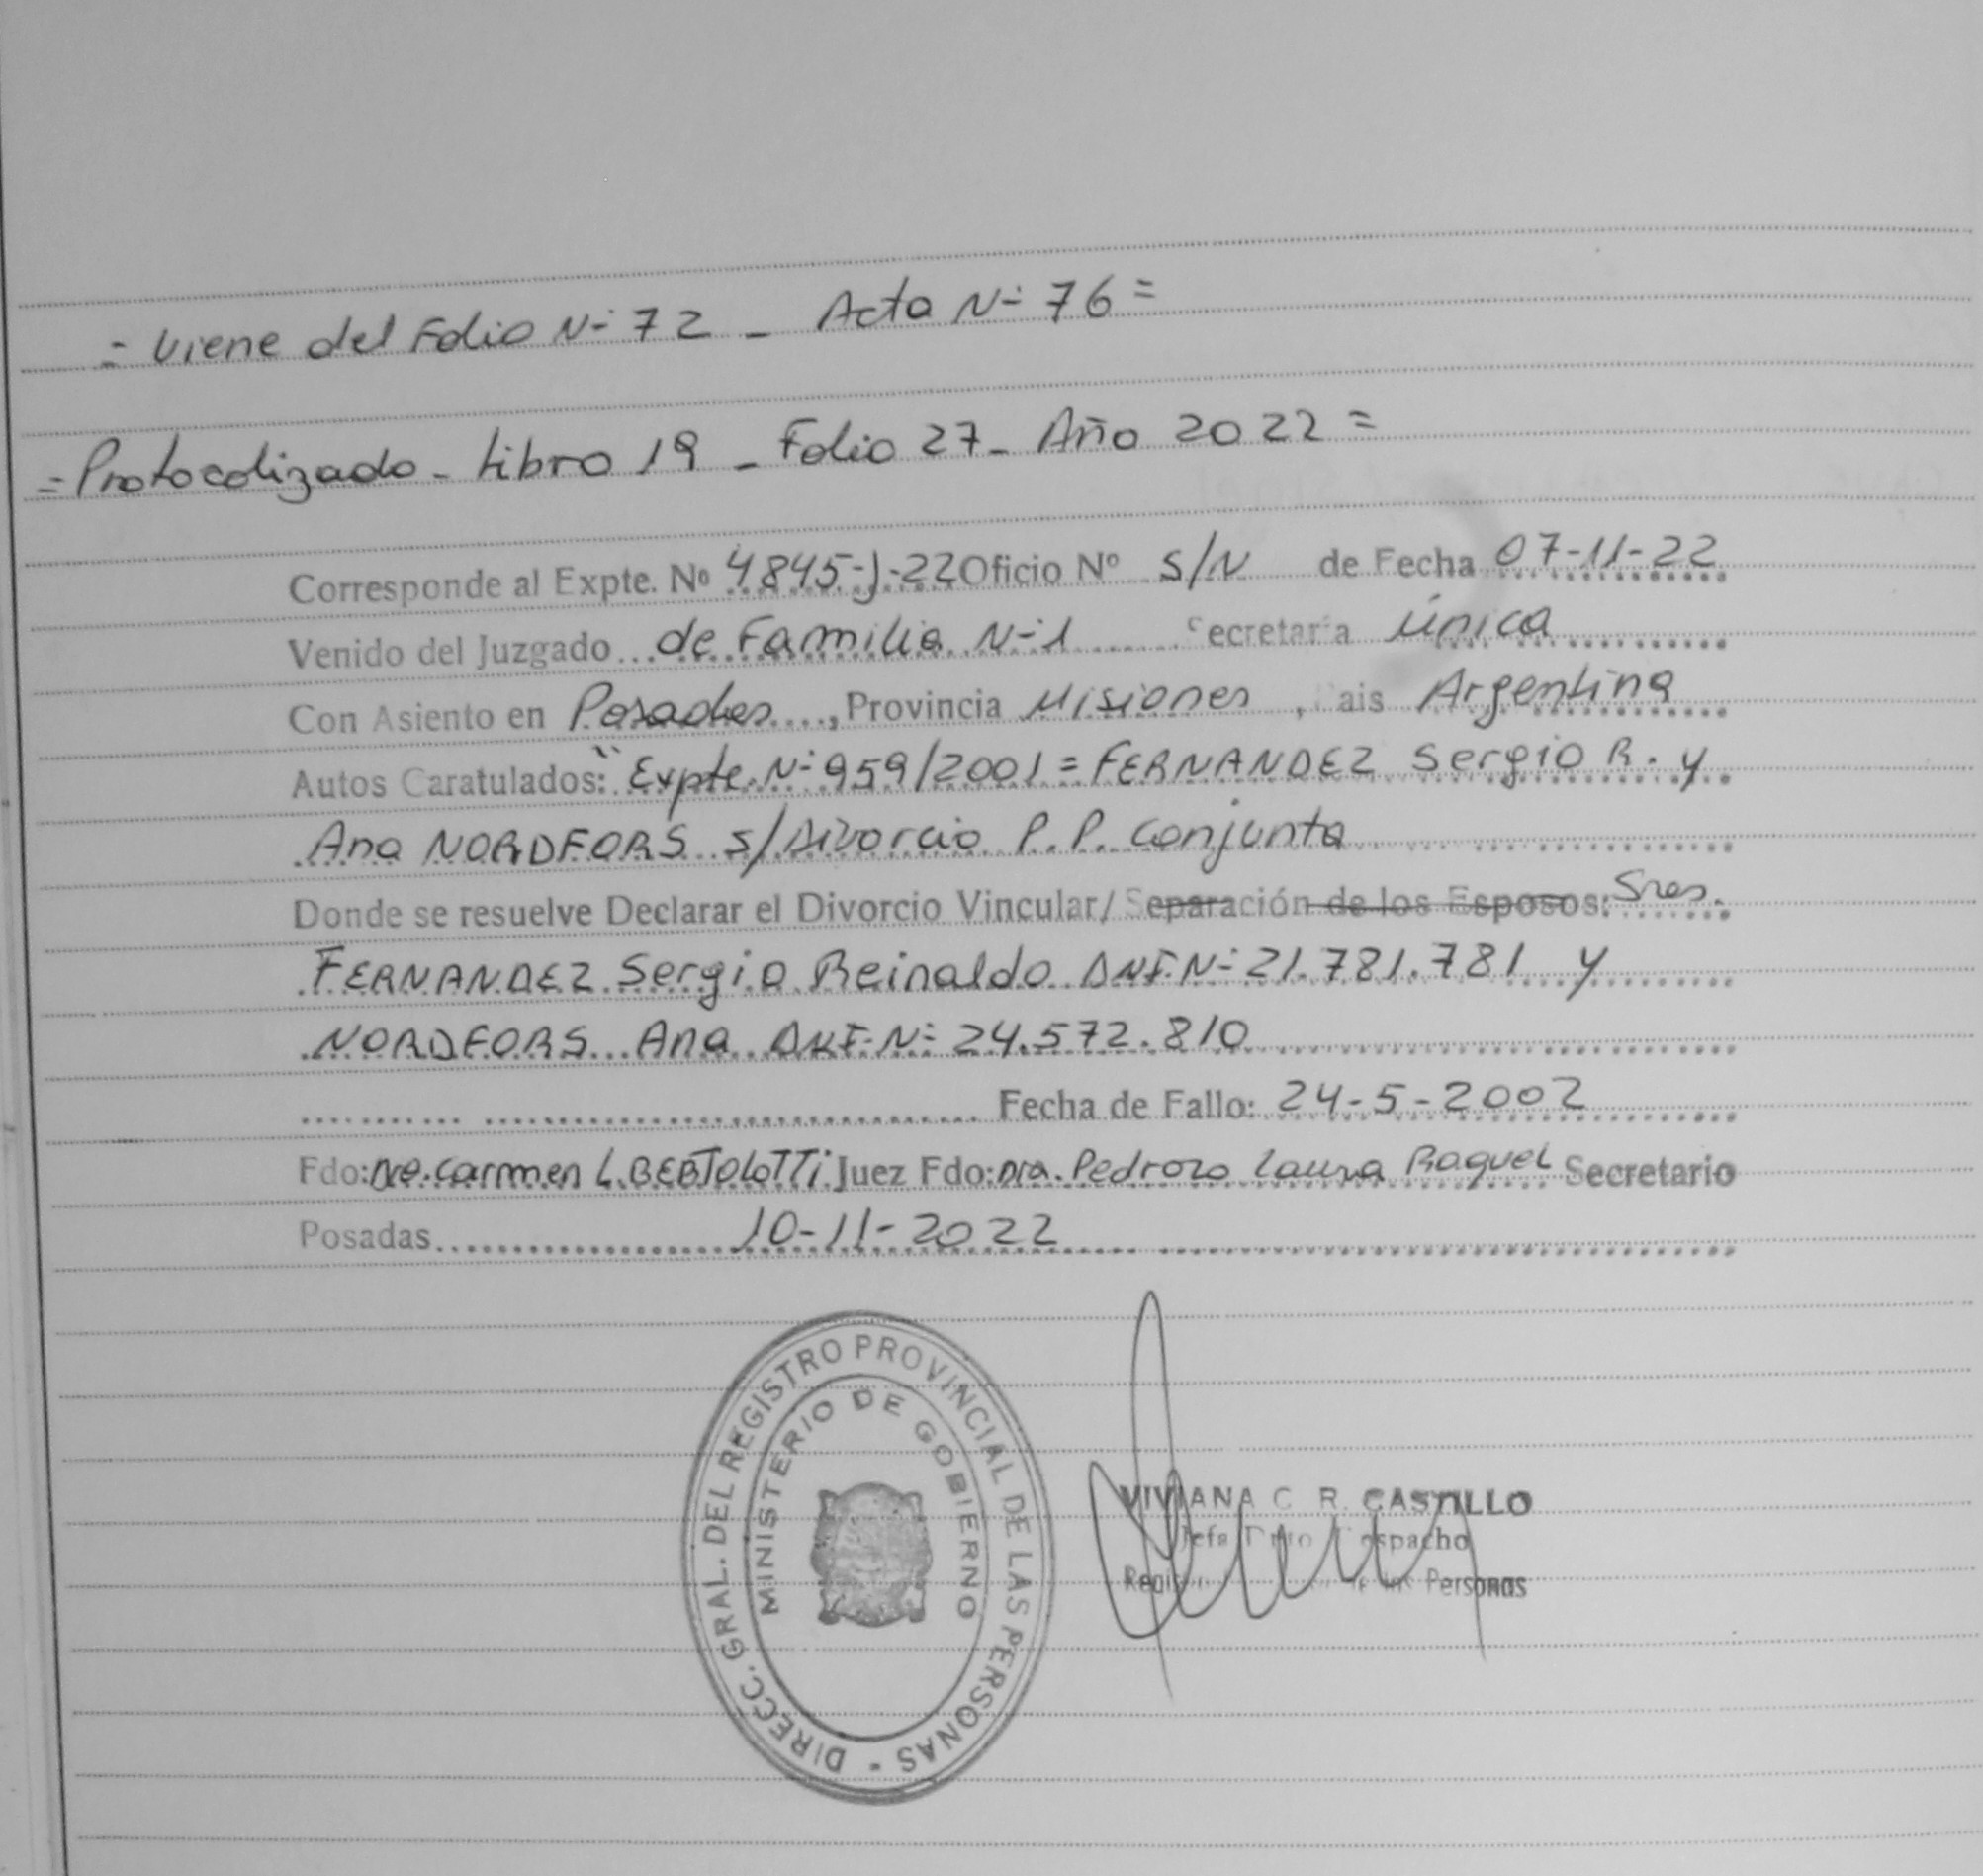 = Viene del Folio N° 72 _ Acta N° 76 =
= Protocolizado - Libro 19 _ Folio 27 _ Año 2022 =
Corresponde al Expte. Nº 4845-J-22 Oficio Nº S/N de Fecha 07-11-22
Venido del Juzgado de Familia N° 1 Secretaría Única
Con Asiento en Posadas, Provincia Misiones, Pais Argentina
Autos Caratulados: "Expte. N° 959/2001 = FERNANDEZ Sergio R. y
Ana NORDFORS s/Divorcio P.P. Conjunta
Donde se resuelve Declarar el Divorcio Vincular/ Separación de los Esposos: Sres.
FERNANDEZ Sergio Reinaldo DNI. N° 21.781.781 y
NORDFORS Ana DNI. N° 24.572.810
Fecha de Fallo: 24-5-2002
Fdo: Dra. Carmen L. BERTOLOTTI Juez Fdo: Dra. Pedrozo Laura Raquel Secretario
Posadas 10-11-2022
DIRECC. GRAL. DEL REGISTRO PROVINCIAL DE LAS PERSONAS -
MINISTERIO DE GOBIERNO
VIVIANA C. R. CASTILLO
Jefa Dpto Despacho
Personas